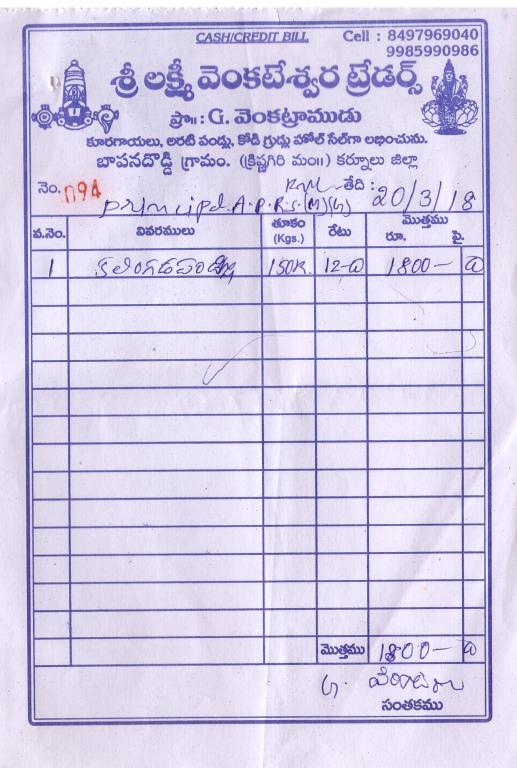 CASH/CREDIT BILL Cell : 8497969040
9985990986
శ్రీ లక్ష్మీ వెంకటేశ్వర ట్రేడర్స్
ప్రొ॥ : G. వెంకట్రాముడు
కూరగాయలు, అరటి పండ్లు, కోడి గ్రుడ్లు హోల్ సేల్‌గా లభించును.
బాపనదొడ్డి గ్రామం. (క్రిష్ణగిరి మం॥) కర్నూలు జిల్లా
నెం. 094 తేది : 20/3/18
Principal A.P.R.S.(M)(G)
వ.నెం. వివరములు తూకం (Kgs.) రేటు మొత్తము రూ. పై.
1 150K 12-00 1800- 00
మొత్తము 1800- 00
G.
సంతకము